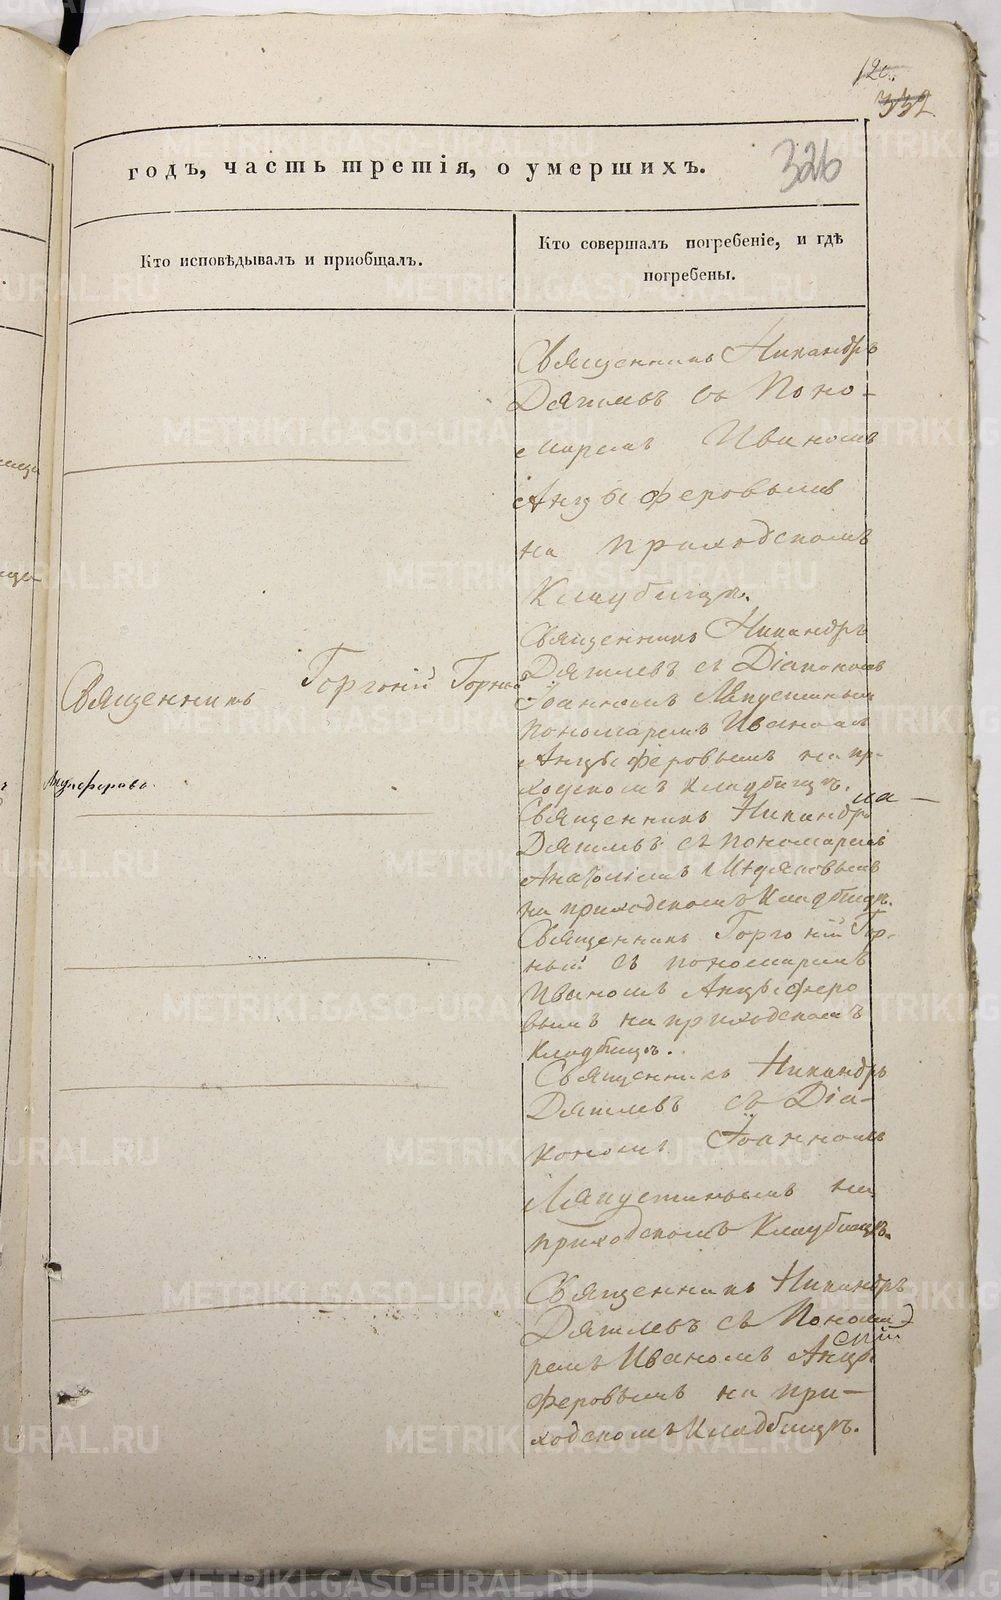 326
годъ, часть третія, о умершихъ.
Кто исповѣдывалъ и пріобщалъ.
Кто совершалъ погребеніе, и гдѣ
погребены.
Священникъ Никандръ
Дягилевъ съ Поно-
маремъ Иваномъ
Анцыферовымъ
на приходскомъ
Кладбищѣ.
Священникъ Горгоній Горный
Священникъ Никандръ
Дягилевъ съ Діакономъ
Іоанномъ Ляпустинымъ
пономаремъ Иваномъ
Анцыферовымъ на пр-
ходскомъ Кладбищѣ.
Священникъ Никандръ
Дягилевъ съ пономаремъ
Анатоліемъ
на приходскомъ Кладбищѣ.
Священникъ Горгоній Гор-
ный съ пономаремъ
Иваномъ Анцыферо
вымъ на приходскомъ
Кладбищѣ.
Священникъ Никандръ
Дягилевъ съ Діа-
кономъ Іоанномъ
Ляпустинымъ на
приходскомъ Кладбищѣ.
Священникъ Никандръ
Дягилевъ съ Понома
ремъ Иваномъ Анцы
феровымъ на при-
ходскомъ Кладбищѣ.
METRIKI.GASO-URAL.RU